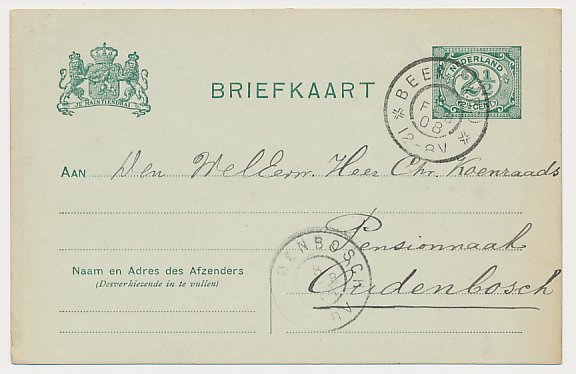 JE MAINTIENDRAI
BRIEFKAART
NEDERLAND
2½
2½ CENT
BEEK
8
FEB
08
12-8V
AAN Den WelEerw. Heer Chr. Koenraads
Pensionnaat
Oudenbosch
DENBOSCH
8
Naam en Adres des Afzenders
(Desverkiezende in te vullen)